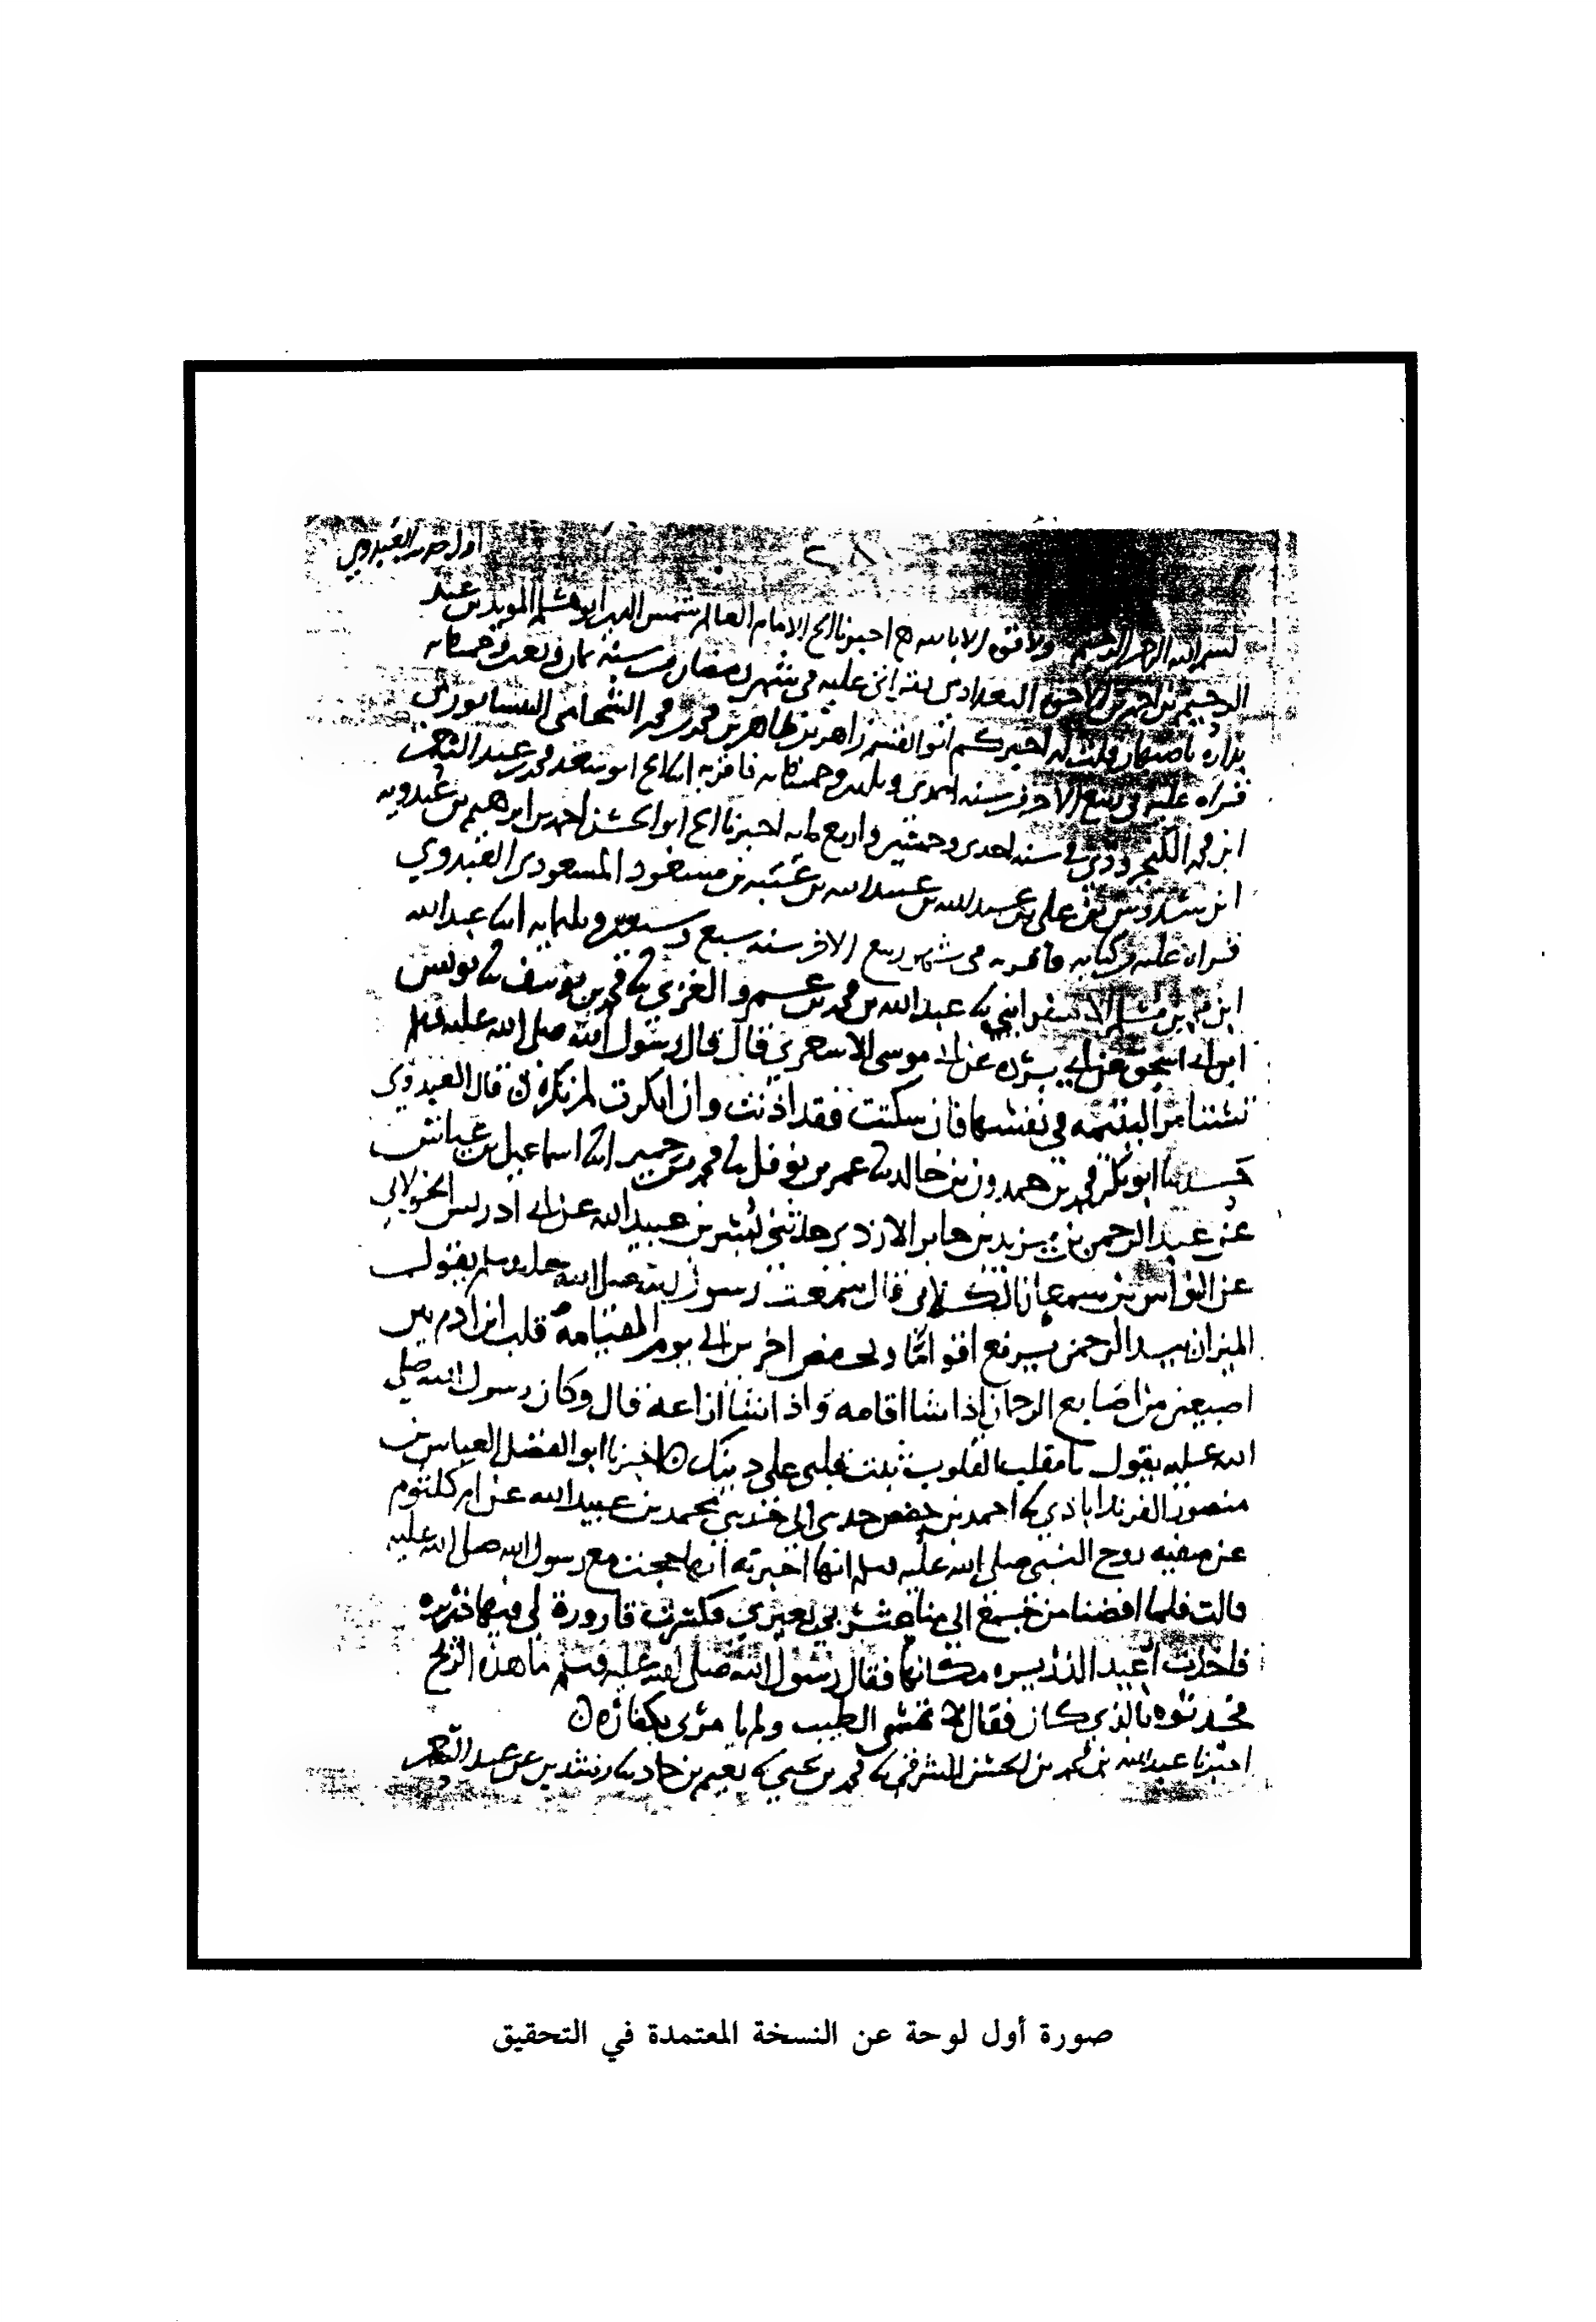 أول حديث العبدوي
٢٨
بسم الله الرحمن الرحيم ولا قوة الا بالله اخبرنا الامام العالم شمس الدين ابو هشم المويد بن عبد
الرحيم بن احمد بن الاخوة البغدادي بقراتي عليه في شهر رمضان من سنة وخمسمائه
بداره باصبهان قلت له اخبركم ابو القسم زاهر بن طاهر بن محمد بن محمد الشحامي النيسابوري
قراه عليه في ربيع الاخر سنه احدى وثلثين وخمسمائه فاقر به ابو سعد محمد بن عبد الرحمن
ابن محمد الكنجروذي في سنه احدى وخمسين واربع مائه اخبرنا ابو الحسن احمد بن ابرهيم بن عبدويه
ابن سدوس بن علي بن عبد الله بن عبيد الله بن عبد الله بن عتبه بن مسعود المسعودي العبدوي
قراه عليه في كتابه فاقر به في شهر ربيع الاخر سنه سبع وسبعين وثلثمائه انا عبد الله
ابن محمد بن مسلم الاسفرايني نا عبد الله بن محمد بن عمرو الغزي نا محمد بن يوسف نا يونس
ابن ابي اسحق عن ابي برده عن ابي موسى الاشعري قال قال رسول الله صلى الله عليه وسلم
تستامر اليتيمه في نفسها فان سكتت فقد اذنت وان انكرت لم تكره ن قال العبدوي
حدثنا ابو بكر محمد بن حمدون بن خالد نا عمر بن نوفل نا محمد بن حمير انا اسماعيل بن عياش
عن عبد الرحمن بن يزيد بن جابر الازدي حدثني بشر بن عبيد الله عن ابي ادريس الخولاني
عن النواس بن سمعان الكلابي قال سمعت رسول الله صلى الله عليه وسلم يقول
الميزان بيد الرحمن يرفع اقواما ويخفض اخرين الى يوم القيامه قلب ابن ادم بين
اصبعين من اصابع الرحمان اذا شا اقامه واذا شا ازاغه قال وكان رسول الله صلى
الله عليه يقول يا مقلب القلوب ثبت قلبي على دينك ن اخبرنا ابو الفضل العباس بن
منصور الفرنداباذي نا احمد بن حفص حدثني ابي حدثني محمد بن عبيد الله عن ام كلثوم
عن صفيه زوج النبي صلى الله عليه وسلم انها اخبرته انها حجت مع رسول الله صلى الله عليه
قالت فلما افضنا من جمع الى منا عثر بي بعيري فكسرت قارورة لي فيها ذريره
فاخذت اعيد الذريره مكانها فقال رسول الله صلى الله عليه وسلم ما هذه الريح
فحدثوه بالذي كان فقال لا تمسي الطيب ولم يامرني بكفاره ن
اخبرنا عبد الله بن محمد بن الحسن الشرقي نا محمد بن يحيى نا نعيم بن حماد نا رشدين عن عبد الرحمن
صورة أول لوحة عن النسخة المعتمدة في التحقيق